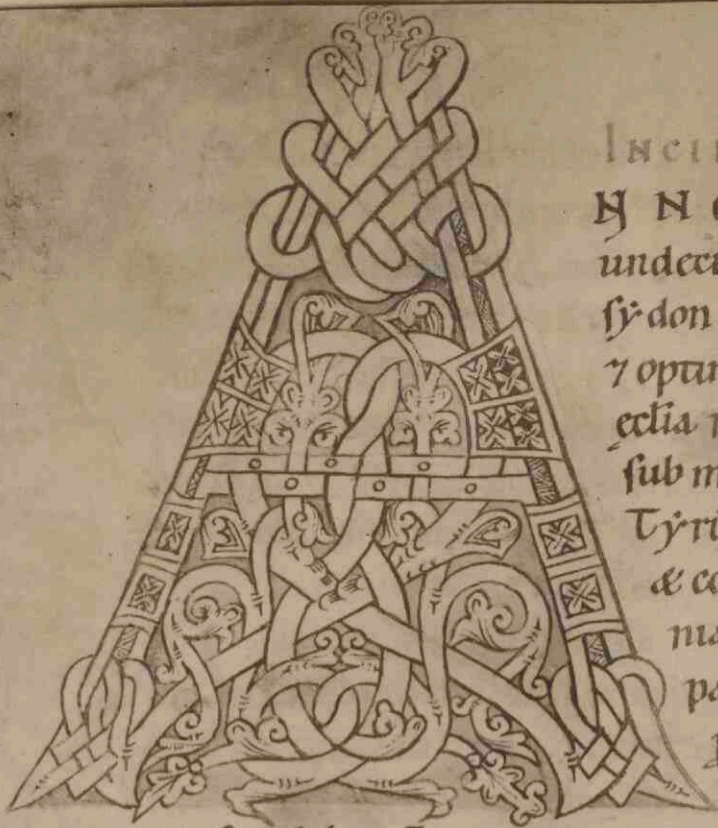 INCI
NN
undeci
sydon
⁊ optim
ecclia
sub m
Tyri
æ ce
nia
pa